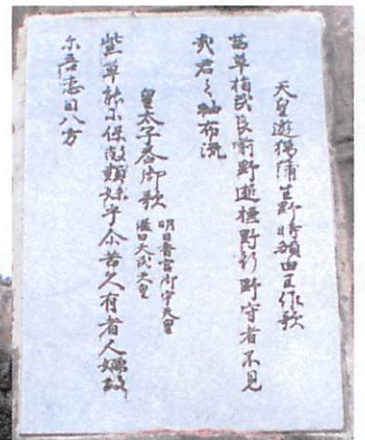 天皇遊猟蒲生野時額田王作歌
茜草指武良前野逝標野行野守者不見
哉君之袖布流
皇太子答御歌 明日香宮御宇天皇
諡曰天武天皇
紫草能尓保敝類妹乎尓苦久有者人嬬故
尓吾恋目八方